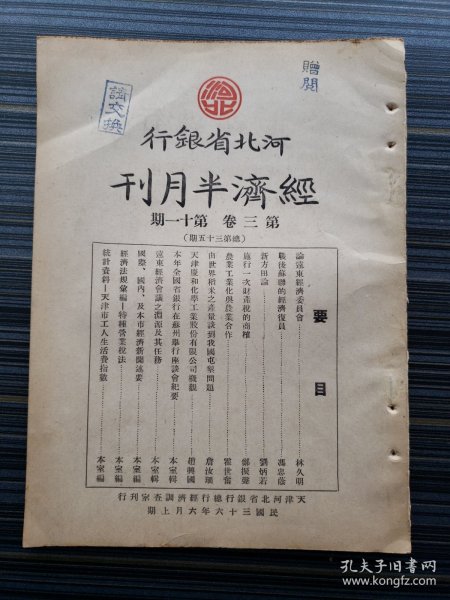 贈閱
請交換
河北
河北省銀行
經濟半月刊
第三卷 第十一期
（總第三十五期）
要目
論遠東經濟委員會 林久明
戰後蘇聯的經濟復員 馮忠蔭
新方田論 劉炳若
施行一次財產稅的商榷 鄭振聲
農業工業化與農業合作 霍世奮
由世界稻米之產量談到我國屯墾問題 詹汝珊
天津慶和化學工業股份有限公司概觀 趙興國
本年全國省銀行在蘇州舉行座談會紀要 本室輯
遠東經濟會議之淵源及其任務 本室輯
國際、國內、及本市經濟新聞述要 本室編
經濟法規彙編—特種營業稅法 本室編
統計資料—天津市工人生活費指數 本室編
天津河北省銀行總行經濟調查室刊行
民國三十六年六月上期
孔夫子旧书网
www.kongfz.com